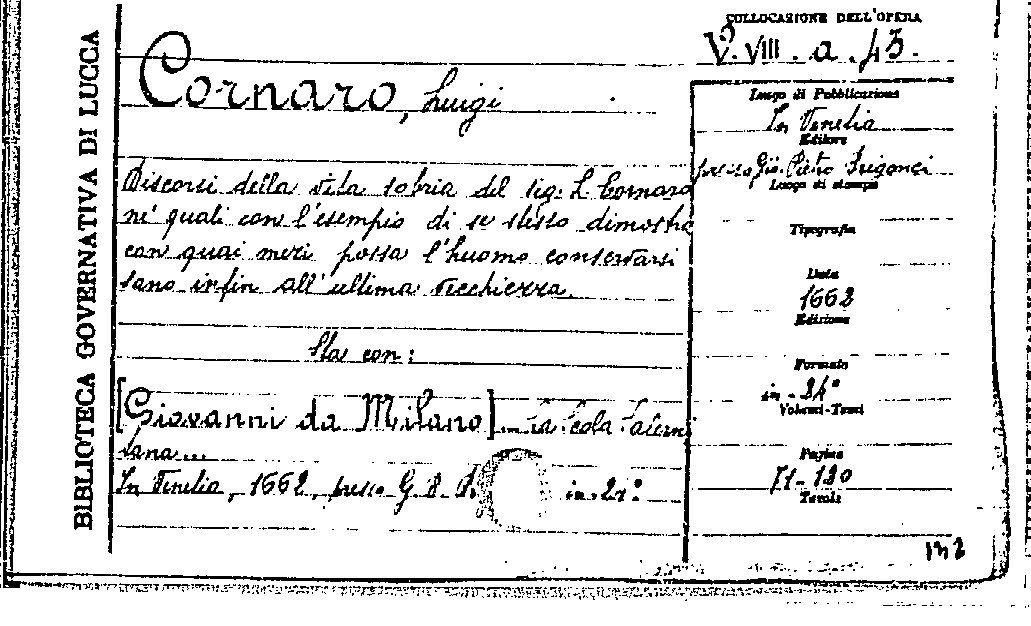 BIBLIOTECA GOVERNATIVA DI LUCCA
COLLOCAZIONE DELL'OPERA
V. VIII. a. 43.
Cornaro, Luigi
Luogo di Pubblicazione
In Venetia
Editore
presso Gio. Pietro Brigonci
Luogo di stampa
Tipografia
Data
1662
Edizione
Formato
in-24°
Volumi-Tomi
Pagine
71-120
Tavole
Discorsi della vita sobria del sig. L. Cornaro
ne' quali con l'esempio di se stesso dimostra
con quai mezi possa l'huomo conservarsi
sano infin all'ultima vecchiezza.
Sta con:
[Giovanni da Milano]... La Scola Salerni
tana...
In Venetia, 1662, presso G. P. in-24°
132